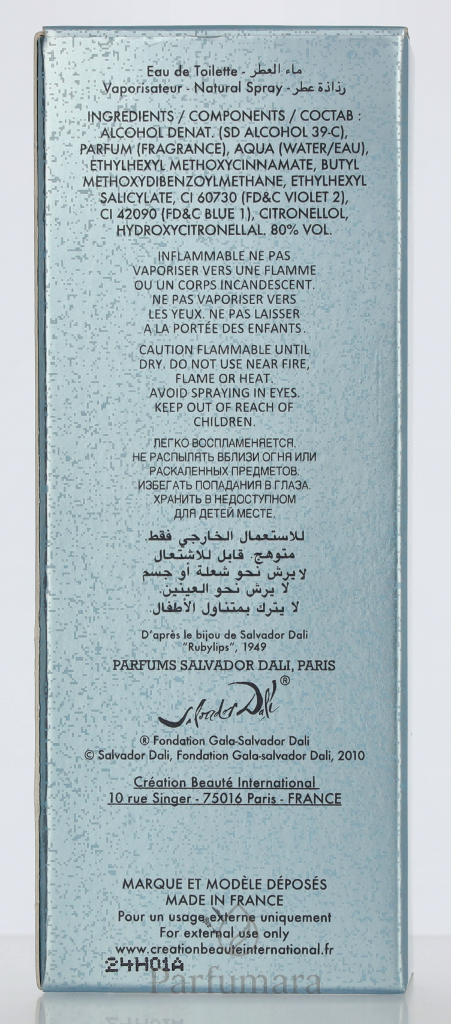 Eau de Toilette - ماء العطر
Vaporisateur - Natural Spray - رذاذة عطر
INGREDIENTS / COMPONENTS / COCTAB :
ALCOHOL DENAT. (SD ALCOHOL 39-C),
PARFUM (FRAGRANCE), AQUA (WATER/EAU),
ETHYLHEXYL METHOXYCINNAMATE, BUTYL
METHOXYDIBENZOYLMETHANE, ETHYLHEXYL
SALICYLATE, CI 60730 (FD&C VIOLET 2),
CI 42090 (FD&C BLUE 1), CITRONELLOL,
HYDROXYCITRONELLAL. 80% VOL.
INFLAMMABLE NE PAS
VAPORISER VERS UNE FLAMME
OU UN CORPS INCANDESCENT.
NE PAS VAPORISER VERS
LES YEUX. NE PAS LAISSER
A LA PORTÉE DES ENFANTS.
CAUTION FLAMMABLE UNTIL
DRY. DO NOT USE NEAR FIRE,
FLAME OR HEAT.
AVOID SPRAYING IN EYES.
KEEP OUT OF REACH OF
CHILDREN.
ЛЕГКО ВОСПЛАМЕНЯЕТСЯ.
НЕ РАСПЫЛЯТЬ ВБЛИЗИ ОГНЯ ИЛИ
РАСКАЛЕННЫХ ПРЕДМЕТОВ.
ИЗБЕГАТЬ ПОПАДАНИЯ В ГЛАЗА.
ХРАНИТЬ В НЕДОСТУПНОМ
ДЛЯ ДЕТЕЙ МЕСТЕ.
للاستعمال الخارجي فقط.
متوهج. قابل للاشتعال
لا يرش نحو شعلة أو جسم
لا يرش نحو العينين.
لا يترك بمتناول الأطفال.
D'après le bijou de Salvador Dali
"Rubylips", 1949
PARFUMS SALVADOR DALI, PARIS
Salvador Dali ®
® Fondation Gala-Salvador Dali
© Salvador Dali, Fondation Gala-salvador Dali, 2010
Création Beauté International
10 rue Singer - 75016 Paris - FRANCE
MARQUE ET MODÈLE DÉPOSÉS
MADE IN FRANCE
Pour un usage externe uniquement
For external use only
www.creationbeauteinternational.fr
24H01A
Parfumara